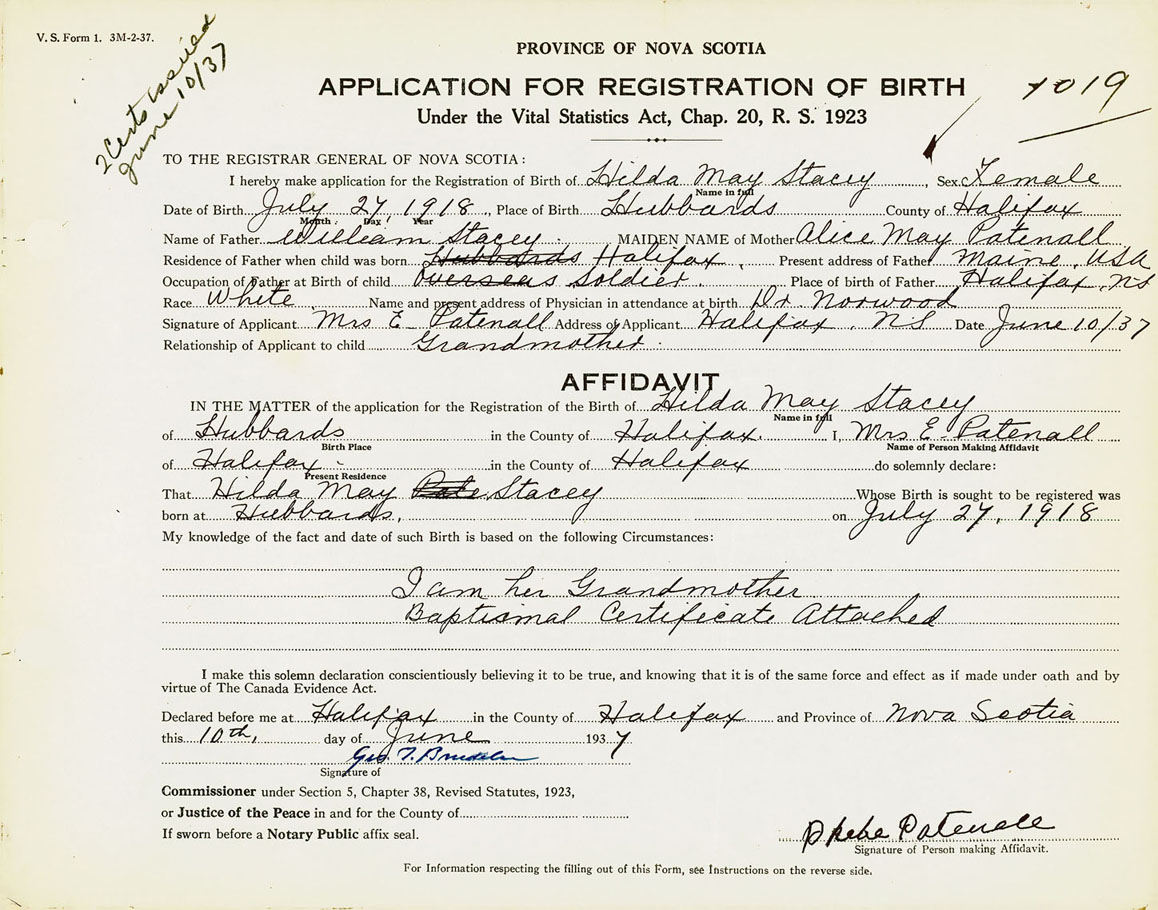 V. S. Form 1. 3M-2-37.
2 Certs issued
June 10/37
PROVINCE OF NOVA SCOTIA
APPLICATION FOR REGISTRATION OF BIRTH
1019
Under the Vital Statistics Act, Chap. 20, R. S. 1923
TO THE REGISTRAR GENERAL OF NOVA SCOTIA:
I hereby make application for the Registration of Birth of Hilda May Stacey, Sex Female
Name in full
Date of Birth July 27, 1918, Place of Birth Hubbards County of Halifax
Month Day Year
Name of Father William Stacey MAIDEN NAME of Mother Alice May Patenall
Residence of Father when child was born Hubbards Halifax, Present address of Father Maine, USA
Occupation of Father at Birth of child Overseas Soldier. Place of birth of Father Halifax, NS
Race White Name and present address of Physician in attendance at birth Dr. Norwood
Signature of Applicant Mrs E Patenall Address of Applicant Halifax, NS Date June 10/37
Relationship of Applicant to child Grandmother.
AFFIDAVIT
IN THE MATTER of the application for the Registration of the Birth of Hilda May Stacey
Name in full
of Hubbards in the County of Halifax. I, Mrs E. Patenall
Birth Place Name of Person Making Affidavit
of Halifax in the County of Halifax do solemnly declare:
Present Residence
That Hilda May Stacey Whose Birth is sought to be registered was
born at Hubbards, on July 27, 1918
My knowledge of the fact and date of such Birth is based on the following Circumstances:
I am her Grandmother
Baptismal Certificate Attached
I make this solemn declaration conscientiously believing it to be true, and knowing that it is of the same force and effect as if made under oath and by
virtue of The Canada Evidence Act.
Declared before me at Halifax in the County of Halifax and Province of Nova Scotia
this 10th, day of June 1937
Geo. T.
Signature of
Commissioner under Section 5, Chapter 38, Revised Statutes, 1923,
or Justice of the Peace in and for the County of
If sworn before a Notary Public affix seal.
Phebe Patenall
Signature of Person making Affidavit.
For Information respecting the filling out of this Form, see Instructions on the reverse side.